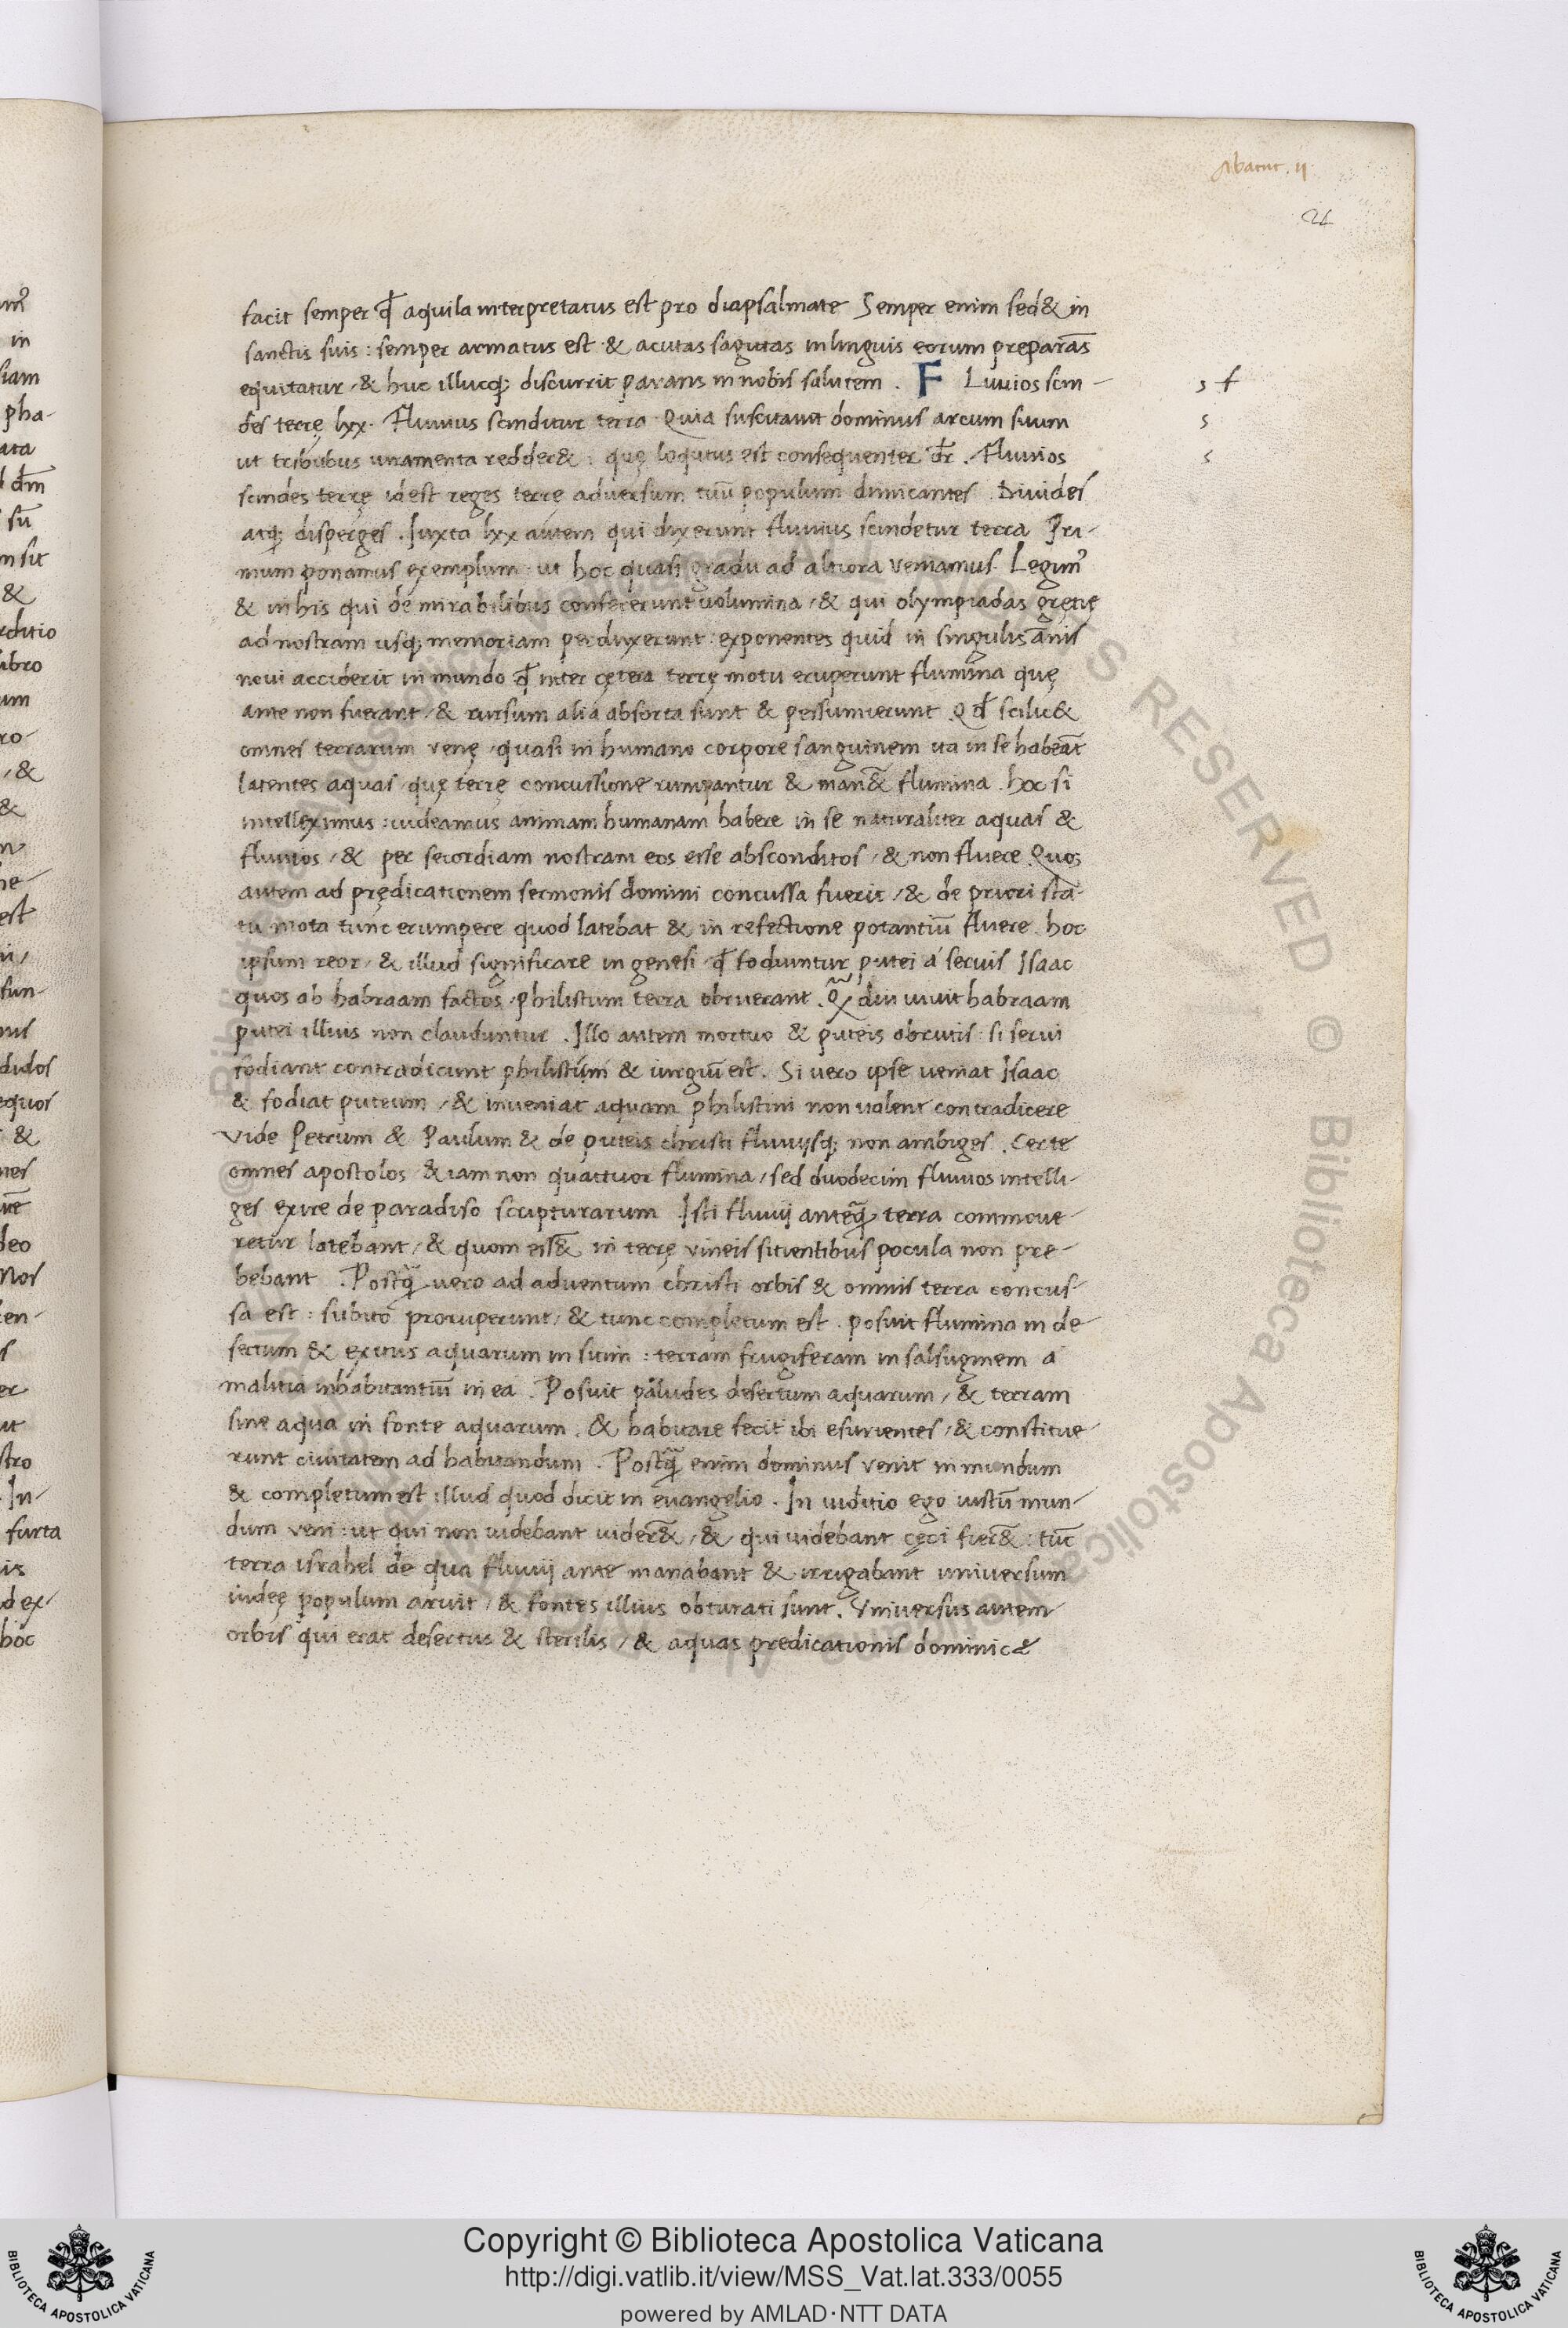 Abacuc . ii
24
facit semper qđ aquila interpretatus est pro diapsalmate Semper enim sed& in
sanctis suis : semper armatus est & acutas sagittas in linguis eorum preparās
equitatur / & huc illucq; discurrit parans in nobis salutem . F Luuios scin-
des terrę lxx. Fluuius scinditur terra Quia suscitauit dominus arcum suum
ut tribubus iuramenta redder& : quę loqutus est consequenter dr̄ . Fluuios
scindes terrę idest reges terrę aduersum tuū populum dimicantes . Diuides
atq; disperges . Iuxta lxx autem qui dixerunt fluuius scindetur terra Pri-
mum ponamus exemplum : ut hoc quasi gradu ad altiora veniamus. Legim9
& in his qui de mirabilibus confecerunt uolumina / & qui olympiadas gręcię
ad nostram usq; memoriam perduxerunt : exponentes quid in singulis ānis
noui acciderit in mundo qđ inter cętera terrę motu eruperunt flumina quę
ante non fuerant / & rursum alia absorta sunt & pessumierunt . Qđ scilic&
omnes terrarum venę / quasi in humano corpore sanguinem ita in se habeāt
latentes aquas quę terrę concussione rumpantur & man&̄ flumina . hoc si
intelleximus : uideamus animam humanam habere in se naturaliter aquas &
fluuios / & per secordiam nostram eos esse absconditos / & non fluere Quos
autem ad prędicationem sermonis domini concussa fuerit / & de priori sta-
tu mota tunc erumpere quod latebat & in refectione potantiū fluere hoc
ipsum reor / & illud significare in genesi qđ fodiuntur putei á seruis Isaac
quos ab habraam factos / philistum terra obruerant . Q̄ diu uiuit habraam
putei illius non clauduntur . Illo autem mortuo & puteis obrutis : si serui
fodiant contradicunt philistiim & iurgiū est . Si uero ipse ueniat Isaac
& fodiat puteum / & inueniat aquam philistini non ualent contradicere
Vide Petrum & Paulum & de puteis christi fluuijsq; non ambiges . Certe
omnes apostolos & iam non quattuor flumina / sed duodecim fluuios intelli-
ges exire de paradiso scripturarum Isti fluuij anteq̄ terra commoue-
retur latebant / & quom ess&̄ in terrę vineis sitientibus pocula non pre-
bebant . Postq̄ uero ad aduentum christi orbis & omnis terra concus-
sa est : subito proruperunt / & tunc completum est . posuit flumina in de-
sertum & exitus aquarum in sitim : terram frugiferam in salsuginem a
malitia inhabitantiū in ea . Posuit paludes desertum aquarum / & terram
sine aqua in fonte aquarum . & habitare fecit ibi esurientes / & constitue-
runt ciuitatem ad habitandum . Postq̄ enim dominus venit in mundum
& completum est illud quod dicit in euangelio . In iuditio ego iustū mun-
dum veni : ut qui non uidebant uider&̄ / & qui uidebant cęci fier&̄ : tūc
terra israhel de qua fluuij ante manabant & irrigabant uniuersum
iudeę populum aruit / & fontes illius obturati sunt . Vniuersus autem
orbis qui erat desertus & sterilis / & aquas predicationis dominicę
s f
s
s
Copyright © Biblioteca Apostolica Vaticana
http://digi.vatlib.it/view/MSS_Vat.lat.333/0055
powered by AMLAD·NTT DATA
BIBLIOTECA APOSTOLICA VATICANA
BIBLIOTECA APOSTOLICA VATICANA